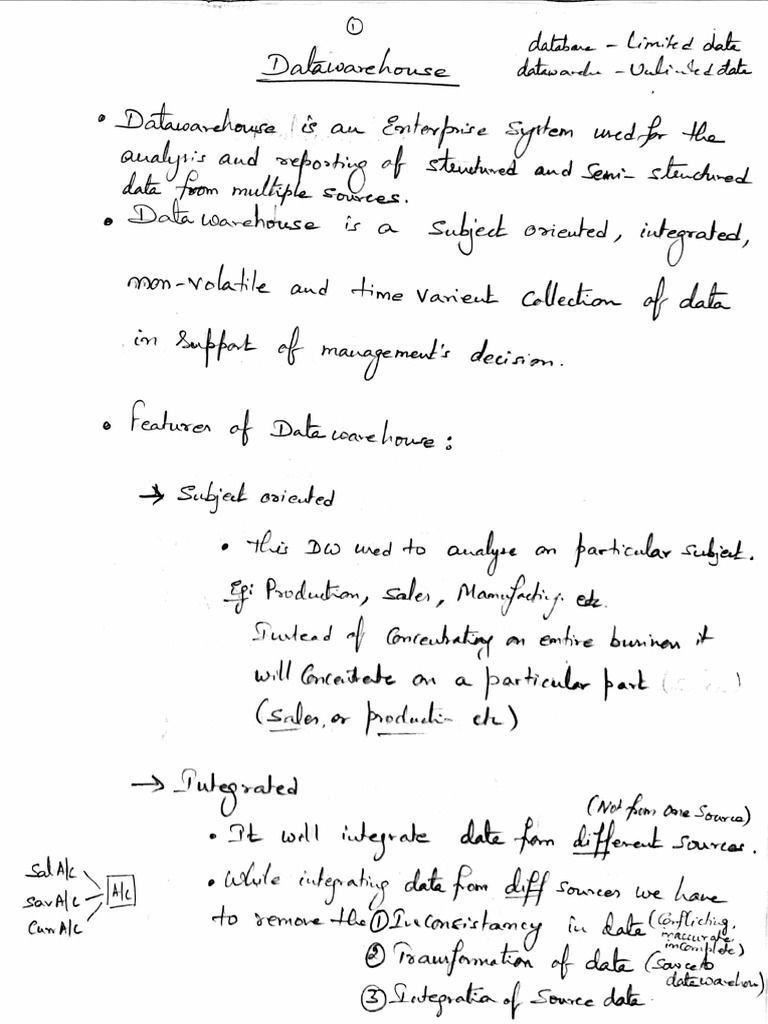 ①
database - Limited data
Datawarehouse
datawarehe - Unlimited data
• Datawarehouse is an Enterprise System used for the
analysis and reporting of structured and semi-structured
data from multiple sources.
• Data warehouse is a subject oriented, integrated,
non-volatile and time varient collection of data
in support of management's decision.
• Features of Data warehouse:
→ Subject oriented
• This DW used to analyse on particular subject.
Eg: Production, Sales, Manufacting. etc.
Instead of concentrating on entire business it
will concentrate on a particular part
(Sales, or production etc)
→ Integrated
(Not from one source)
• It will integrate data from different sources.
• While integrating data from diff sources we have
Sal A/c
Sav A/c
Curr A/c
A/c
to remove the ① Inconsistancy in data (conflicting,
inaccurate
incomplete)
② Transformation of data (source to
datawarehouse)
③ Integration of source data.